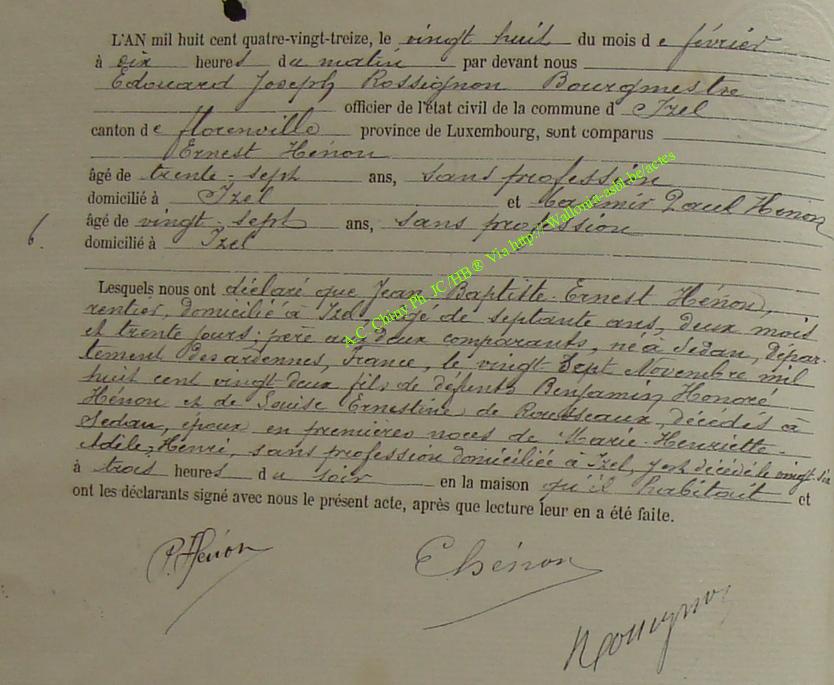 L'AN mil huit cent quatre-vingt-treize, le vingt huit du mois de février
à dix heures du matin par devant nous
Edouard Joseph Rossignon Bourgmestre
officier de l'état civil de la commune d' Izel
canton de florenville province de Luxembourg, sont comparus
Ernest Hénon
âgé de trente-sept ans, sans profession
domicilié à Izel et Casimir Paul Hénon
âgé de vingt-sept ans, sans profession
6.
domicilié à Izel
Lesquels nous ont déclaré que Jean Baptiste Ernest Hénon,
rentier, domicilié à Izel âgé de septante ans, deux mois
et trente jours, père aux deux comparants, né à Sedan, dépar-
tement des ardennes, France, le vingt Sept Novembre mil
huit cent vingt-deux fils de défunts Benjamin Honoré
Hénon et de Louise Ernestine de Rousseaux, décédés à
Sedan, époux en premières noces de Marie-Henriette-
Adèle Henri, sans profession domiciliée à Izel, y est décédé le vingt-six
à trois heures du soir en la maison qu'il habitait et
ont les déclarants signé avec nous le présent acte, après que lecture leur en a été faite.
P. Hénon
E hénon
Rossignon
A.C. Chiny Ph. JC /HB ® Via http://Wallonia-asbl.be/actes